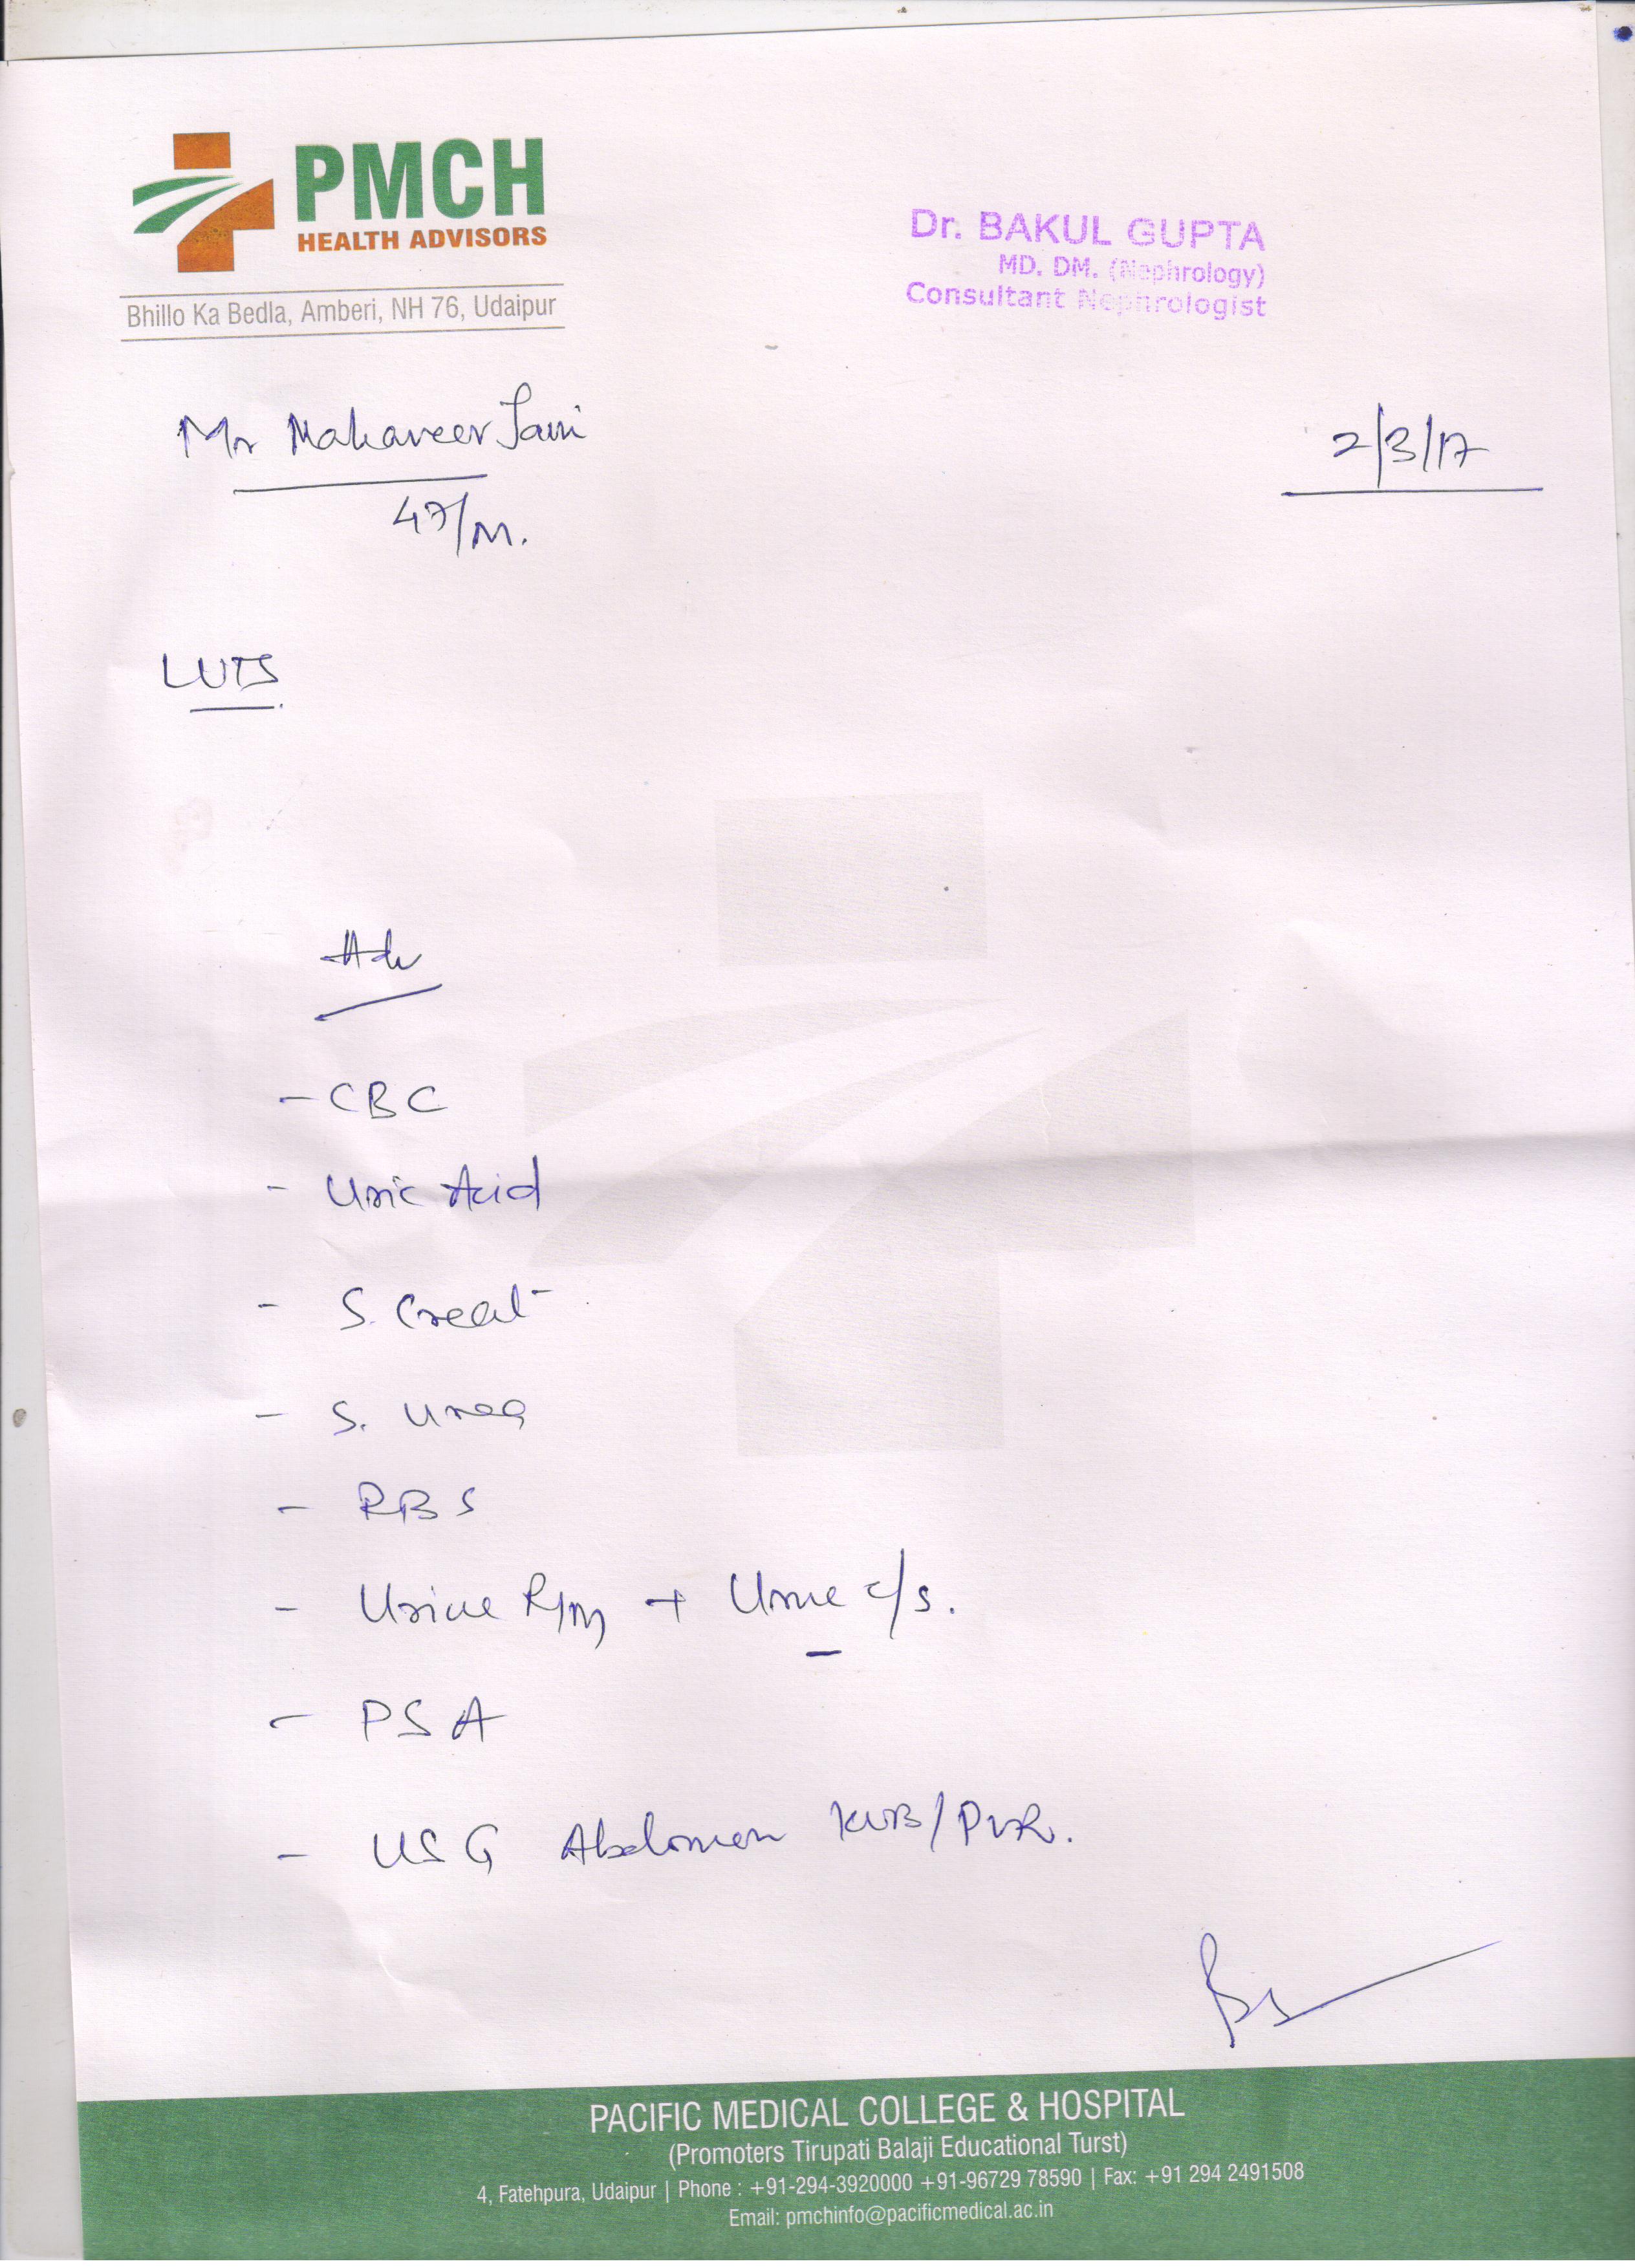 PMCH
HEALTH ADVISORS
Bhillo Ka Bedla, Amberi, NH 76, Udaipur
Dr. BAKUL GUPTA
MD. DM. (Nephrology)
Consultant Nephrologist
Mr Mahaveer Jain
2/3/17
47/M.
LUTS
Adv
- CBC
- Uric Acid
- S. Creat
- S. Urea
- RBS
- Urine R/M + Urine c/s.
- PSA
- USG Abdomen KUB/PVR.
PACIFIC MEDICAL COLLEGE & HOSPITAL
(Promoters Tirupati Balaji Educational Turst)
4, Fatehpura, Udaipur | Phone : +91-294-3920000 +91-96729 78590 | Fax: +91 294 2491508
Email: pmchinfo@pacificmedical.ac.in